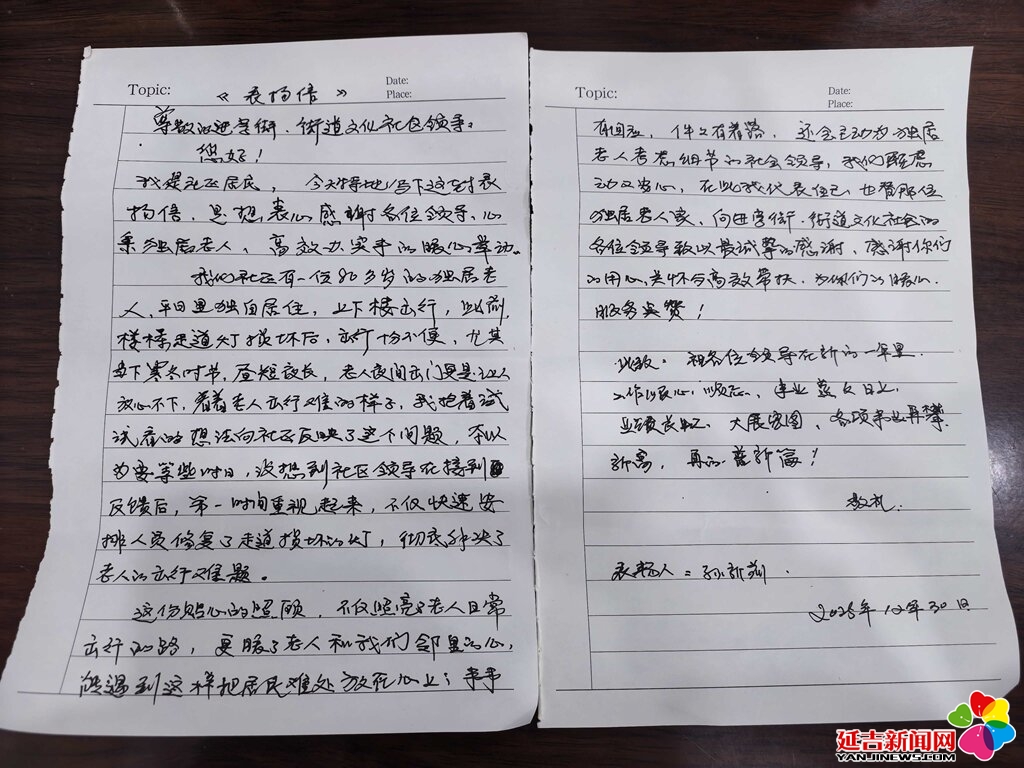 Topic:
Date:
Place:
《表扬信》
尊敬的进学街、街道文化社区领导。
您好!
我是社区居民, 今天特地写下这封表
扬信, 思想, 衷心感谢各位领导、心
系独居老人、高效办实事的暖心举动。
我们社区有一位80多岁的独居老
人, 平日里独自居住, 上下楼出行, 此前,
楼梯走道灯损坏后, 出行十分不便, 尤其
当下寒冬时节, 昼短夜长, 老人夜间出门更是让人
放心不下, 看着老人出行难的样子, 我抱着试
试看的想法向社区反映了这个问题, 本以
为要等些时日, 没想到社区领导在接到
反馈后, 第一时间重视起来, 不仅快速安
排人员修复了走道损坏的灯, 彻底解决了
老人的出行难题。
这份贴心的照顾, 不仅照亮了老人日常
出行的路, 更暖了老人和我们邻里的心,
能遇到这样把居民难处放在心上; 事事
Topic:
Date:
Place:
有回应, 件件有着落, 还会主动为独居
老人考虑细节的社会领导, 我们既感
动又安心, 在此我代表自己, 也替那位
独居老人家, 向进学街、街道文化社会的
各位领导致以最诚挚的感谢, 感谢你们
的用心关怀与高效帮扶, 为你们的暖心
服务点赞!
此致: 祝各位领导在新的一年里
工作顺心, 顺意, 事业蒸蒸日上,
业绩长虹, 大展宏图, 各项事业再攀
新高, 再的新篇!
敬礼.
表扬人: 孙
2025年12年30日
延吉新闻网
YANJINEWS.COM